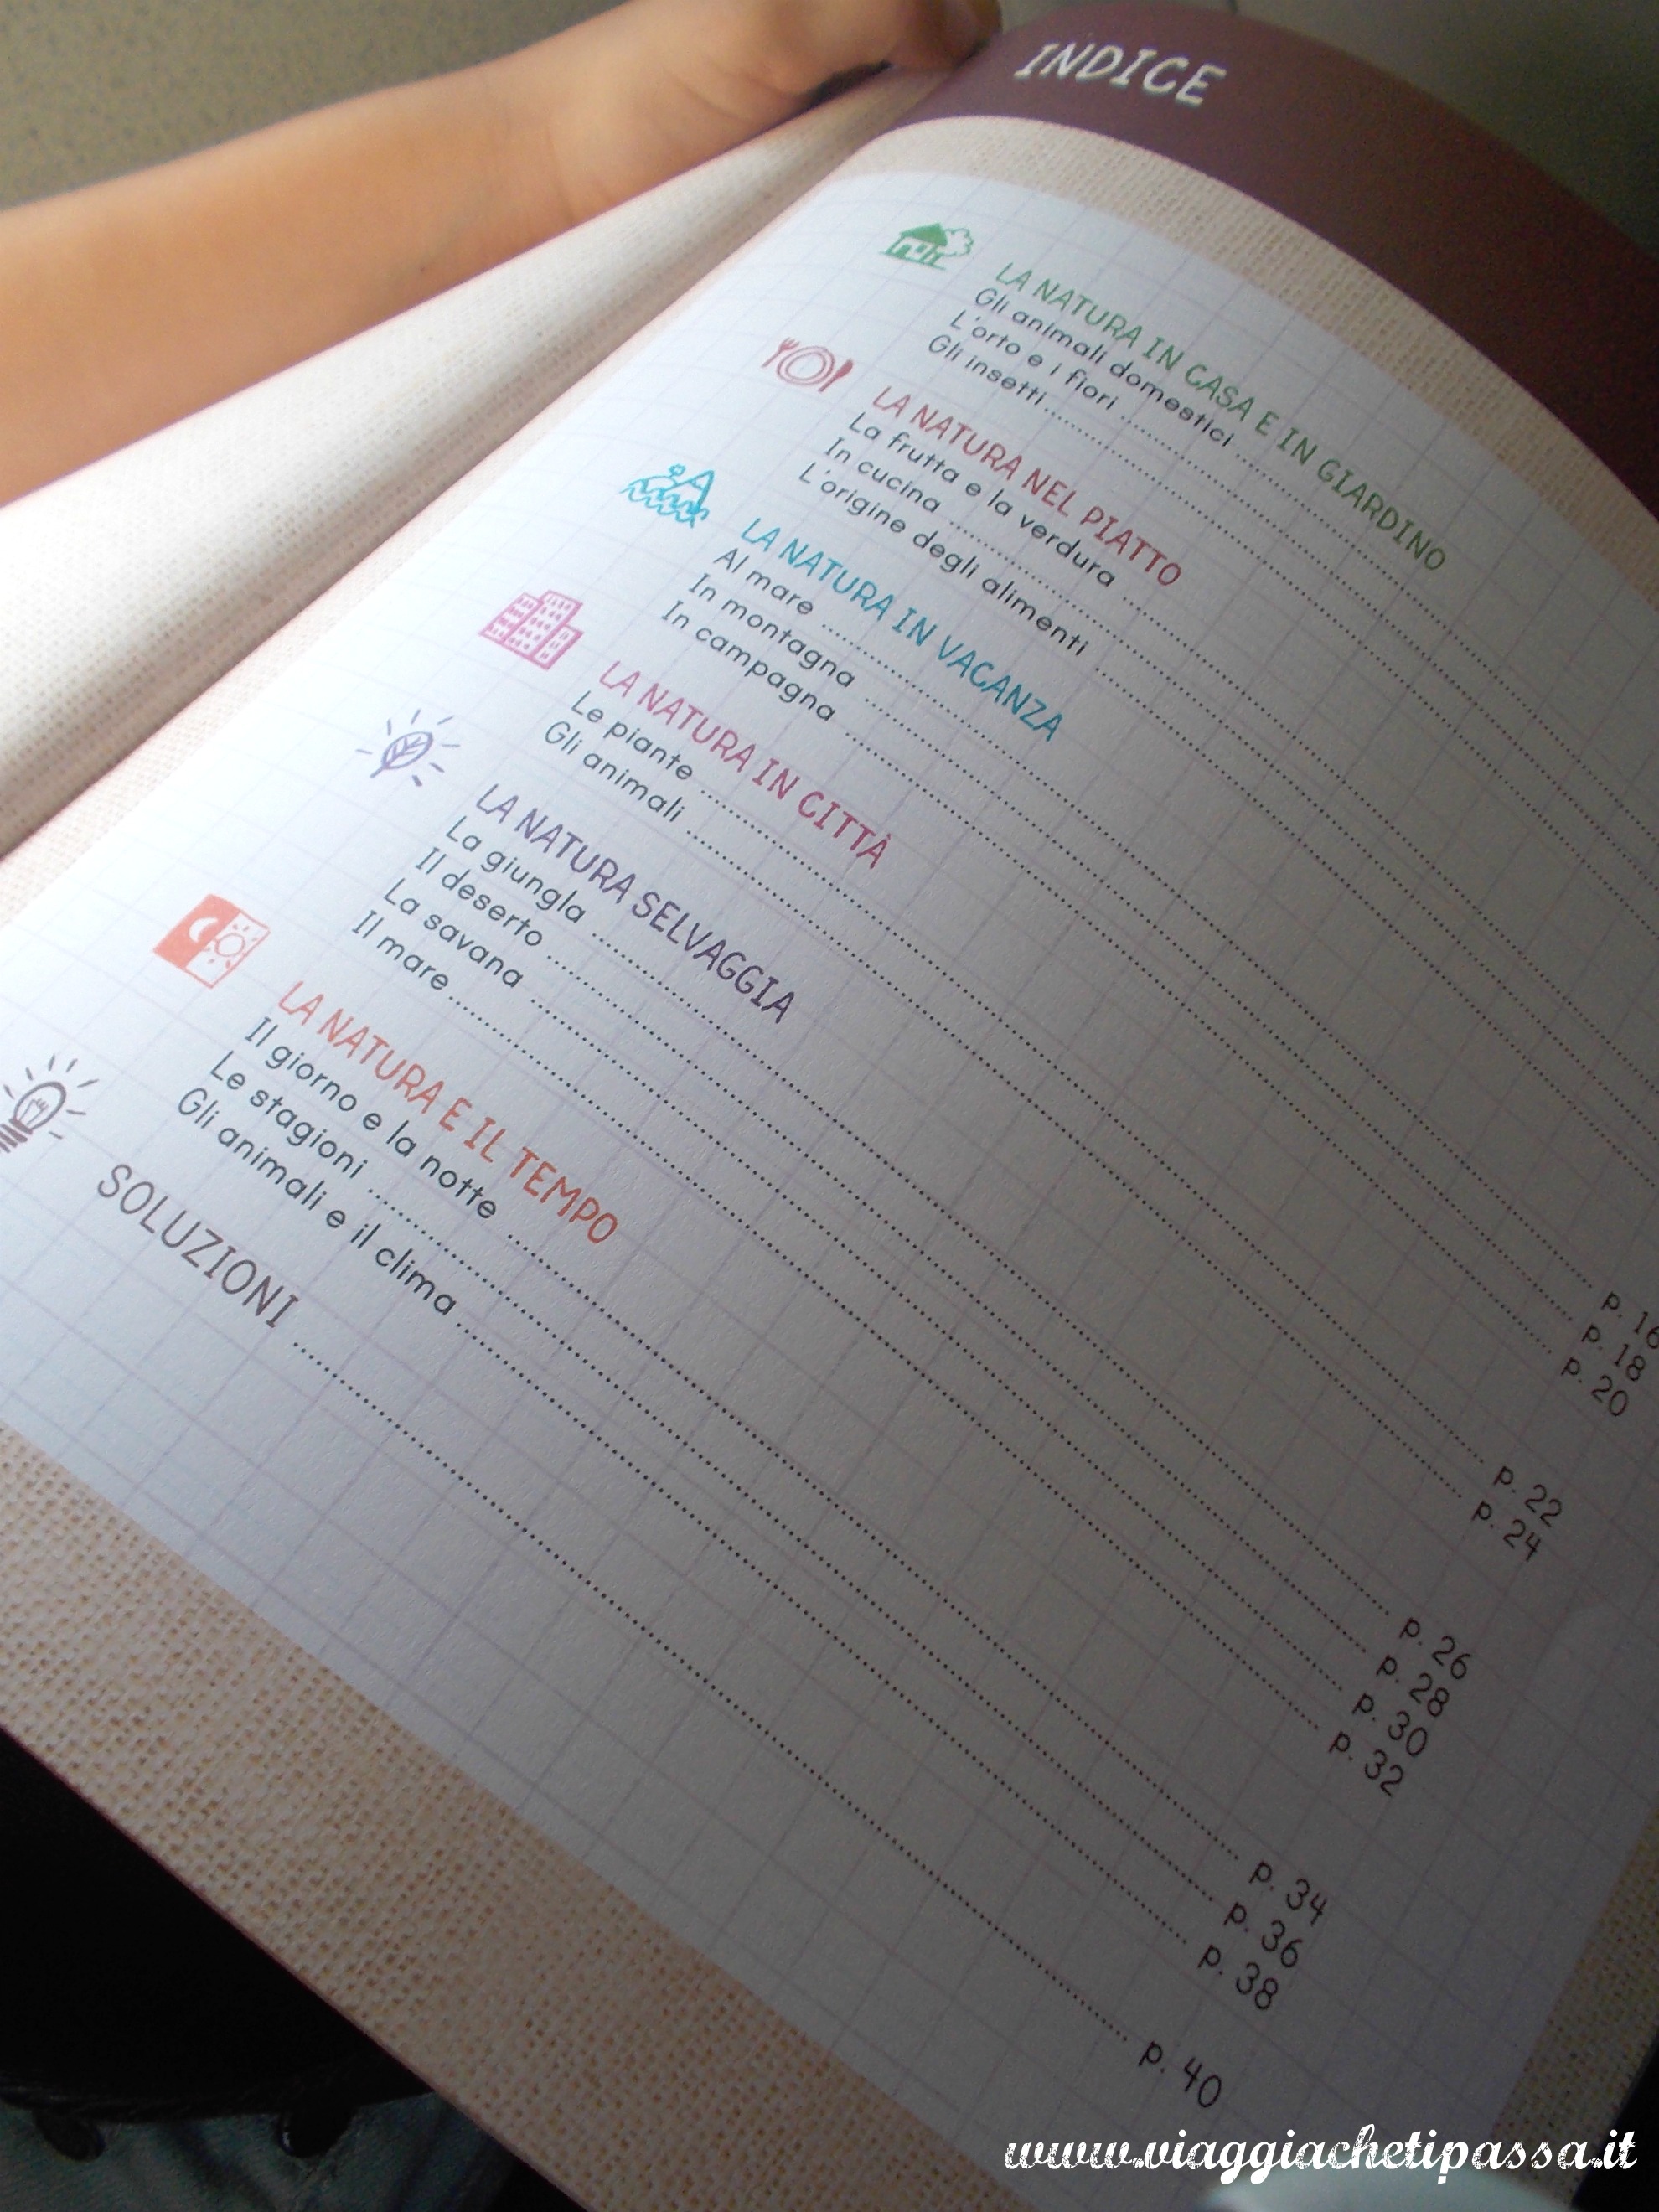 INDICE
LA NATURA IN CASA E IN GIARDINO
Gli animali domestici
L'orto e i fiori
Gli insetti
LA NATURA NEL PIATTO
La frutta e la verdura
In cucina
L'origine degli alimenti
LA NATURA IN VACANZA
Al mare p. 16
In montagna p. 18
In campagna p. 20
LA NATURA IN CITTÀ
Le piante p. 22
Gli animali p. 24
LA NATURA SELVAGGIA
La giungla p. 26
Il deserto p. 28
La savana p. 30
Il mare p. 32
LA NATURA E IL TEMPO
Il giorno e la notte p. 34
Le stagioni p. 36
Gli animali e il clima p. 38
SOLUZIONI p. 40
www.viaggiachetipassa.it